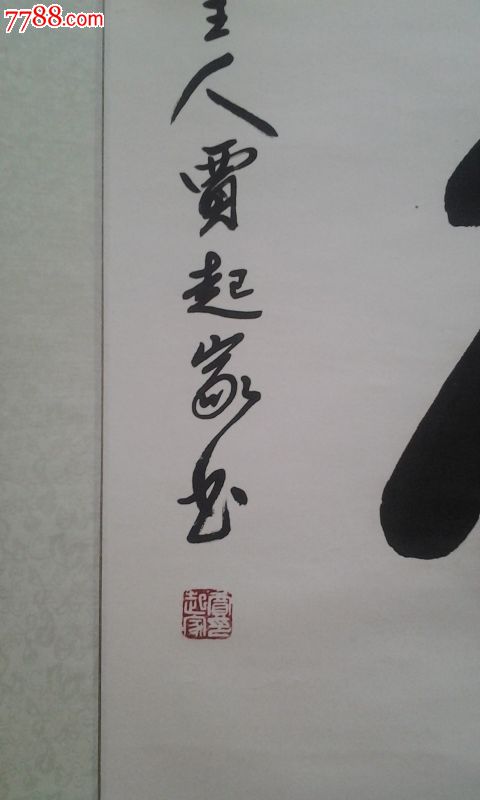 7788.com
主人贾起家书
贾
起家